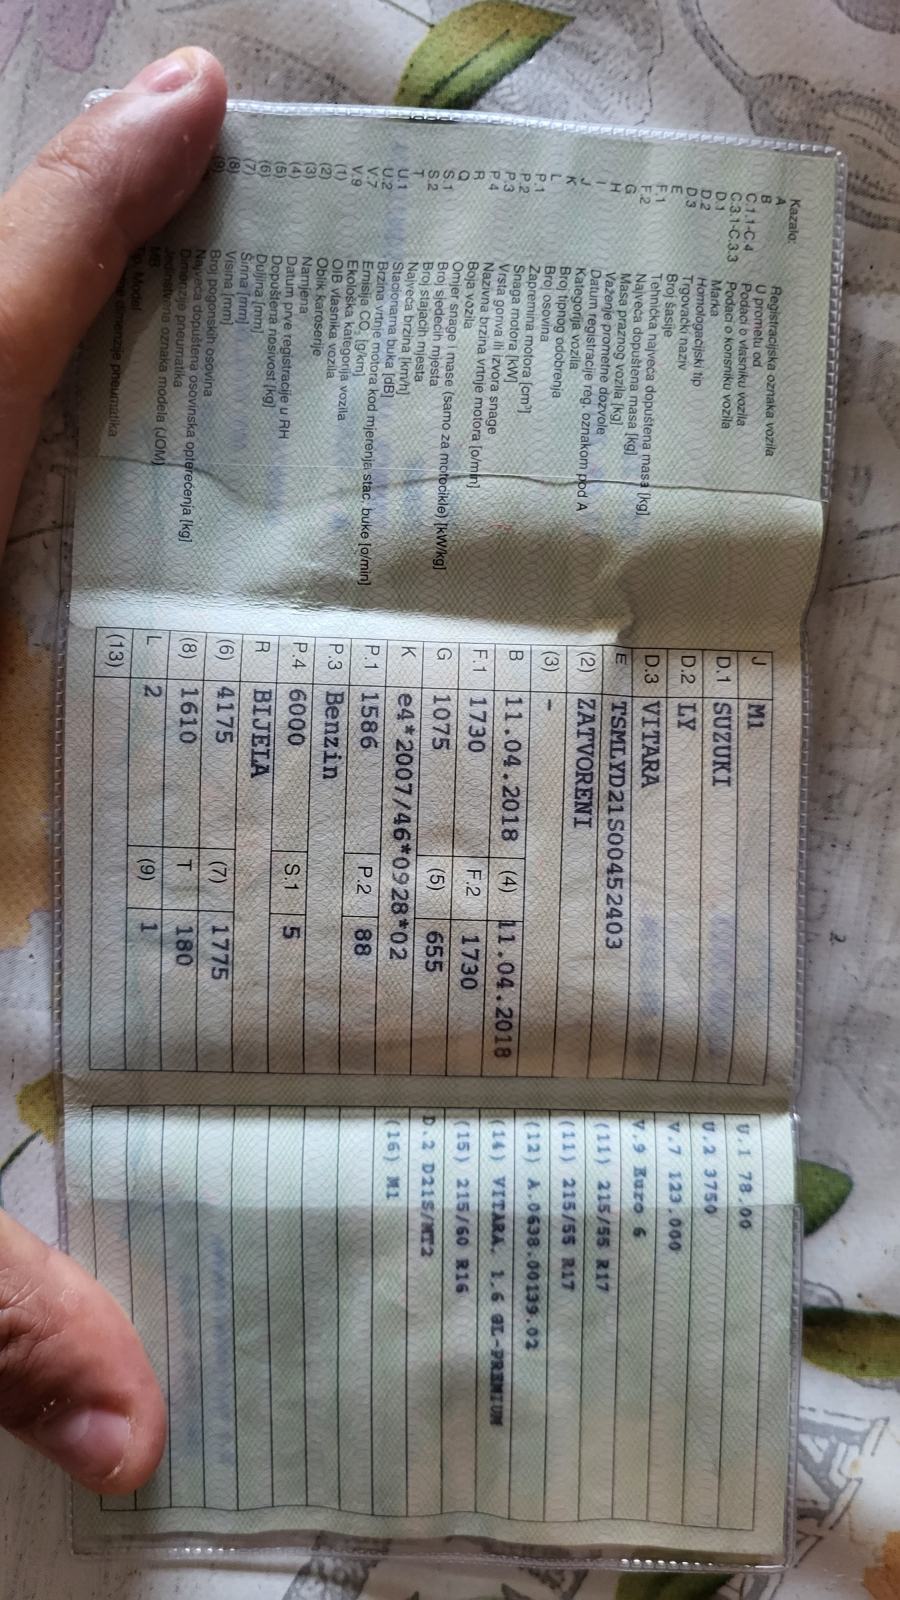 Kazalo:
A Registracijska oznaka vozila
B U prometu od
C.1.1-C.4 Podaci o vlasniku vozila
C.3.1-C.3.3 Podaci o korisniku vozila
D.1 Marka
D.2 Homologacijski tip
D.3 Trgovački naziv
E Broj šasije
F.1 Tehnička najveća dopuštena masa [kg]
F.2 Najveća dopuštena masa [kg]
G Masa praznog vozila [kg]
H Važenje prometne dozvole
I Datum registracije reg. oznakom pod A
J Kategorija vozila
K Broj tipnog odobrenja
L Broj osovina
P.1 Zapremina motora [cm³]
P.2 Snaga motora [kW]
P.3 Vrsta goriva ili izvora snage
P.4 Nazivna brzina vrtnje motora [o/min]
R Boja vozila
Q Omjer snage i mase (samo za motocikle) [kW/kg]
S.1 Broj sjedećih mjesta
S.2 Broj stajaćih mjesta
T Najveća brzina [km/h]
U.1 Stacionarna buka [dB]
U.2 Brzina vrtnje motora kod mjerenja stac. buke [o/min]
V.7 Emisija CO₂ [g/km]
V.9 Ekološka kategorija vozila
(1) OIB vlasnika vozila
(2) Oblik karoserije
(3) Namjena
(4) Datum prve registracije u RH
(5) Dopuštena nosivost [kg]
(6) Duljina [mm]
(7) Širina [mm]
(8) Visina [mm]
(9) Broj pogonskih osovina
Najveća dopuštena osovinska opterećenja [kg]
Dimenzije pneumatika
Jedinstvena oznaka modela (JOM)
MB
Tip, Model
dimenzije pneumatika
J M1
D.1 SUZUKI
D.2 LY
D.3 VITARA
E TSMLYD21S00452403
(2) ZATVORENI
(3) -
B 11.04.2018 (4) 11.04.2018
F.1 1730 F.2 1730
G 1075 (5) 655
K e4*2007/46*0928*02
P.1 1586 P.2 88
P.3 Benzin
P.4 6000 S.1 5
R BIJELA
(6) 4175 (7) 1775
(8) 1610 T 180
L 2 (9) 1
(13)
U.1 78.00
U.2 3750
V.7 123.000
V.9 Euro 6
(11) 215/55 R17
(11) 215/55 R17
(12) A.0638.00139.02
(14) VITARA, 1.6 GL-PREMIUM
(15) 215/60 R16
D.2 D21S/MT2
(16) M1